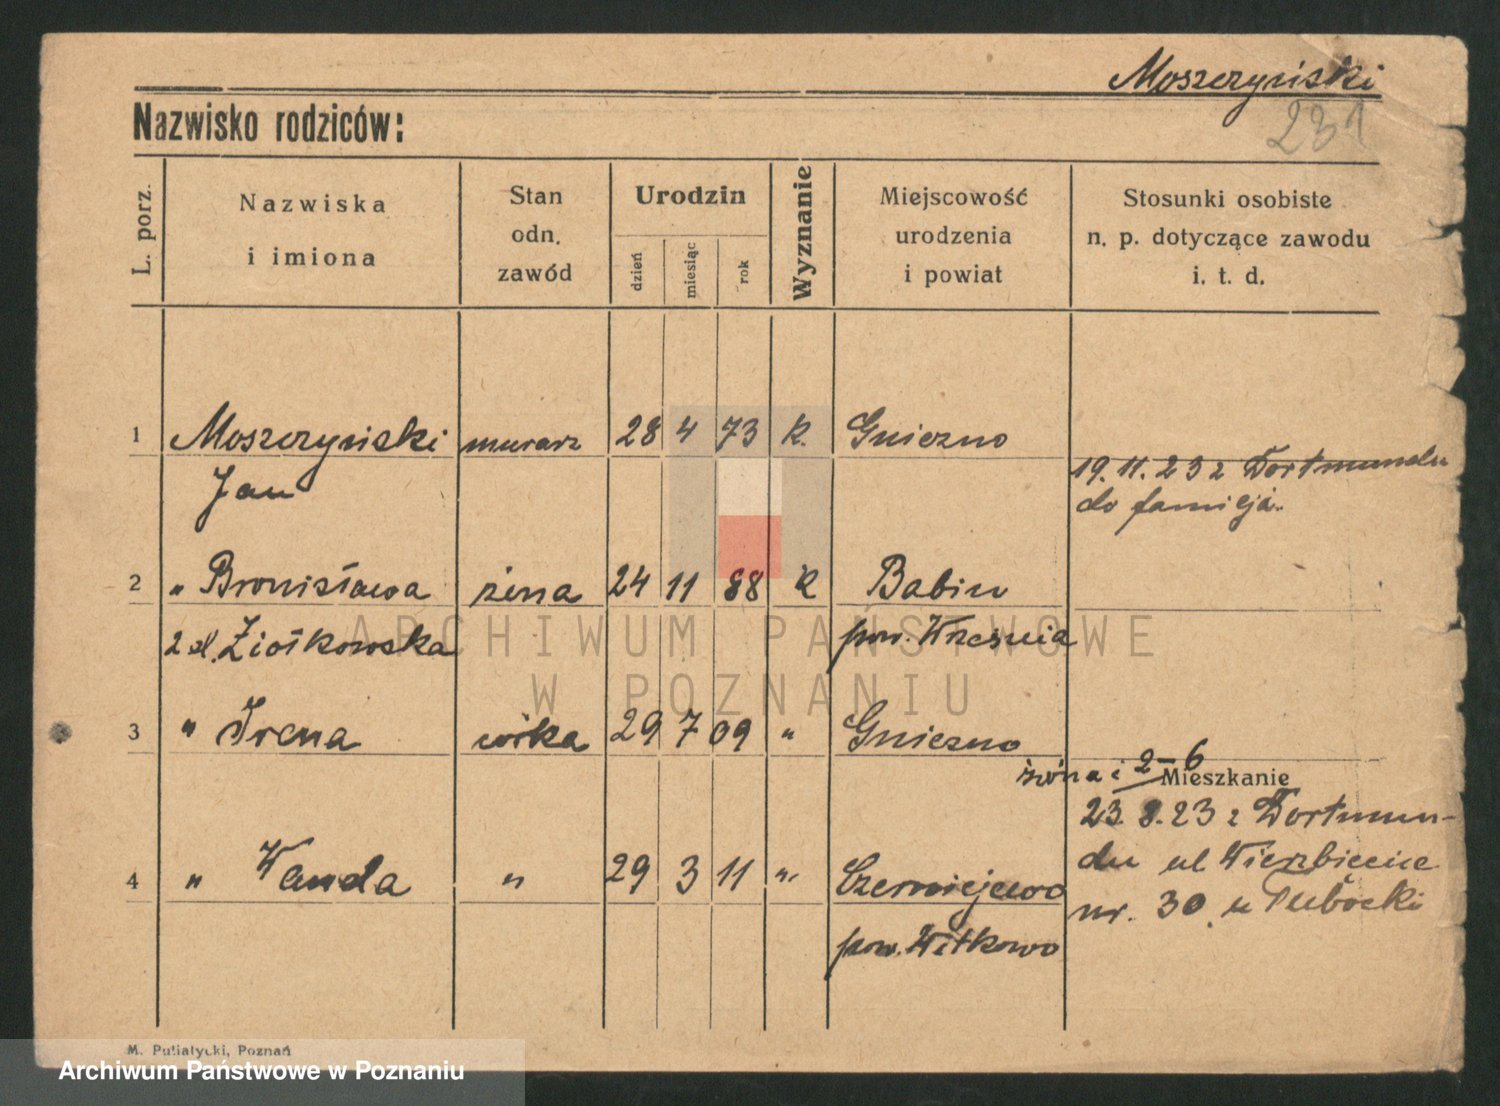 Moszczyński
231
Nazwisko rodziców:
L. porz.
Nazwiska
i imiona
Stan
odn.
zawód
Urodzin
dzień
miesiąc
rok
Wyznanie
Miejscowość
urodzenia
i powiat
Stosunki osobiste
n. p. dotyczące zawodu
i. t. d.
1 Moszczyński murarz 28 4 73 k. Gniezno
Jan
19. 11. 23 z Dortmundu
do familji.
2 „ Bronisława żona 24 11 88 k Babin
z d. Ziółkowska pow. Września
3 „ Irena córka 29 7 09 „ Gniezno
żona i 2-6
Mieszkanie
23. 8. 23 z Dortmun-
du ul Wierzbięcice
nr. 30 u
4 „ Wanda „ 29 3 11 „ Czerniejewo
pow. Witkowo
M. Putiatycki, Poznań
ARCHIWUM PAŃSTWOWE
W POZNANIU
Archiwum Państwowe w Poznaniu